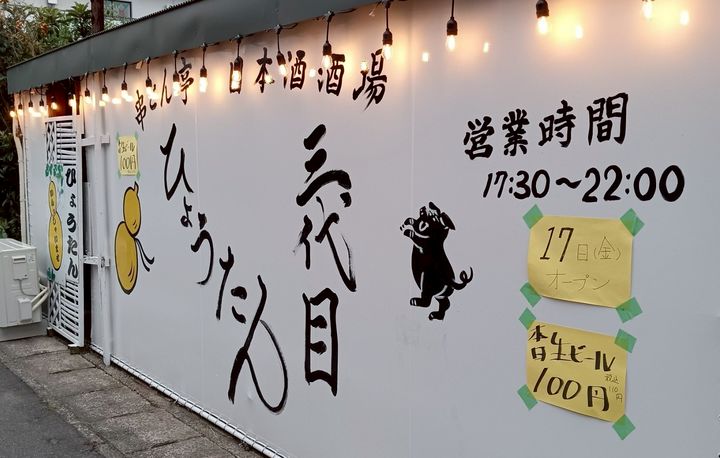 串とん亭 日本酒酒場
三代目
ひょうたん
営業時間
17:30～22:00
17日(金)
オープン
本日生ビール
100円
税込
110円
生ビール
100円
ひょうたん